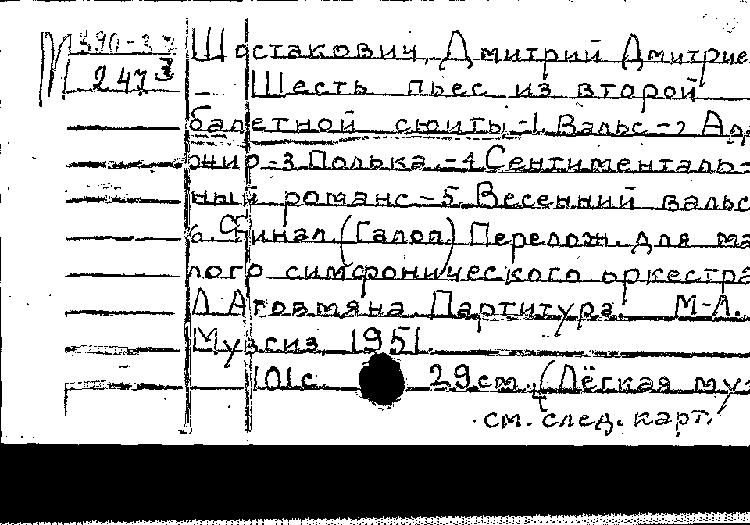 М 390-33
247
Шостакович, Дмитрий Дмитрие
Шесть пьес из второй
балетной сюиты -1. Вальс -2 Ада
жио -3 Полька. -4 Сентименталь-
ный романс -5. Весенний вальс
6. Финал (Галоп) Перелож. для ма
лого симфонического оркестра
Л Атовмяна Партитура. М-Л.
Музгиз, 1951.
101с. 29см. (Лёгкая муз
см. след. карт.